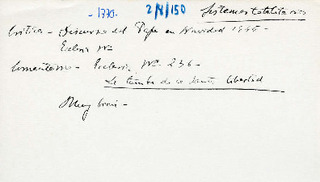 -1770- 2/8/150 Sistemas totalitarios
Crítica - Discurso del Papa en Navidad 1945 -
Ecclesia Nº
Comentario - Ecclesia, Nº 236 -
La tumba de la santa libertad
Muy bueno -